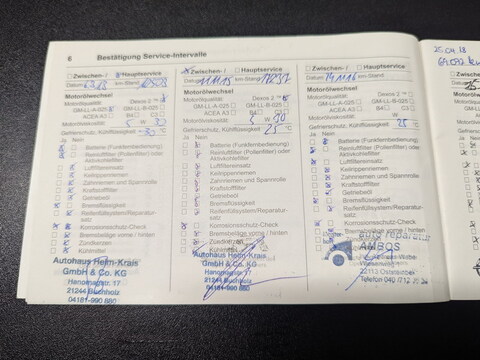 6 Bestätigung Service-Intervalle
Zwischen-/ Hauptservice
Datum km-Stand
Motorölwechsel
Motorölqualität: Dexos 2
GM-LL-A-025 GM-LL-B-025
ACEA A3 B4 C3
Motorölviskosität: 5 W 30
Gefrierschutz, Kühlflüssigkeit -30 °C
Ja Nein
Batterie (Funkfernbedienung)
Reinluftfilter (Pollenfilter) oder
Aktivkohlefilter
Luftfiltereinsatz
Keilrippenriemen
Zahnriemen und Spannrolle
Kraftstofffilter
Getriebeöl
Bremsflüssigkeit
Reifenfüllsystem/Reparatur-
satz
Korrosionsschutz-Check
Bremsbeläge vorne / hinten
Zündkerzen
Kühlmittel
Autohaus Heim-Krais
GmbH & Co. KG
Hanomagstr. 17
21244 Buchholz
04181-990 880
Zwischen-/ Hauptservice
Datum km-Stand
Motorölwechsel
Motorölqualität: Dexos 2
GM-LL-A-025 GM-LL-B-025
ACEA A3 B4 C3
Motorölviskosität: 5 W 30
Gefrierschutz, Kühlflüssigkeit 25 °C
Ja Nein
Batterie (Funkfernbedienung)
Reinluftfilter (Pollenfilter) oder
Aktivkohlefilter
Luftfiltereinsatz
Keilrippenriemen
Zahnriemen und Spannrolle
Kraftstofffilter
Getriebeöl
Bremsflüssigkeit
Reifenfüllsystem/Reparatur-
satz
Korrosionsschutz-Check
Bremsbeläge vorne / hinten
Zündkerzen
Autohaus Heim-Krais
GmbH & Co. KG
Hanomagstr. 17
21244 Buchholz
04181-990 880
Zwischen-/ Hauptservice
Datum km-Stand
Motorölwechsel
Motorölqualität: Dexos 2
GM-LL-A-025 GM-LL-B-025
ACEA A3 B4 C3
Motorölviskosität: W
Gefrierschutz, Kühlflüssigkeit 25 °C
Ja Nein
Batterie (Funkfernbedienung)
Reinluftfilter (Pollenfilter) oder
Aktivkohlefilter
Luftfiltereinsatz
Keilrippenriemen
Zahnriemen und Spannrolle
Kraftstofffilter
Getriebeöl
Bremsflüssigkeit
Reifenfüllsystem/Reparatur-
satz
Korrosionsschutz-Check
Bremsbeläge vorne / hinten
auto reparatur
AMBOS
22113 Oststeinbek
Telefon 040 /712
25.04.18